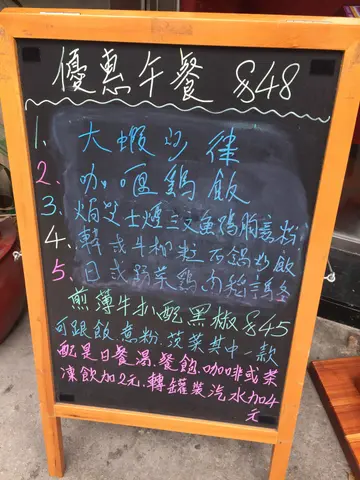 優惠午餐 $48
1. 大蝦沙律
2. 咖喱鷄飯
3. 焗芝士煙三文魚鴨胸意粉
4. 韓式牛柳粒石鍋炒飯
5. 日式野菜鷄肉
煎薄牛扒配黑椒 $45
可跟飯.意粉.菠菜其中一款
配是日餐湯.餐飽.咖啡或茶
凍飲加2元.轉罐裝汽水加4元